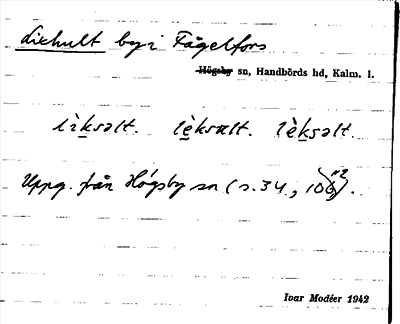 Lixhult by i Fågelfors
Högsby sn, Handbörds hd, Kalm. l.
lìksəlt. lèksælt. lèksəlt.
Uppg. från Högsby sn (s. 34, 106).
Ivar Modéer 1942